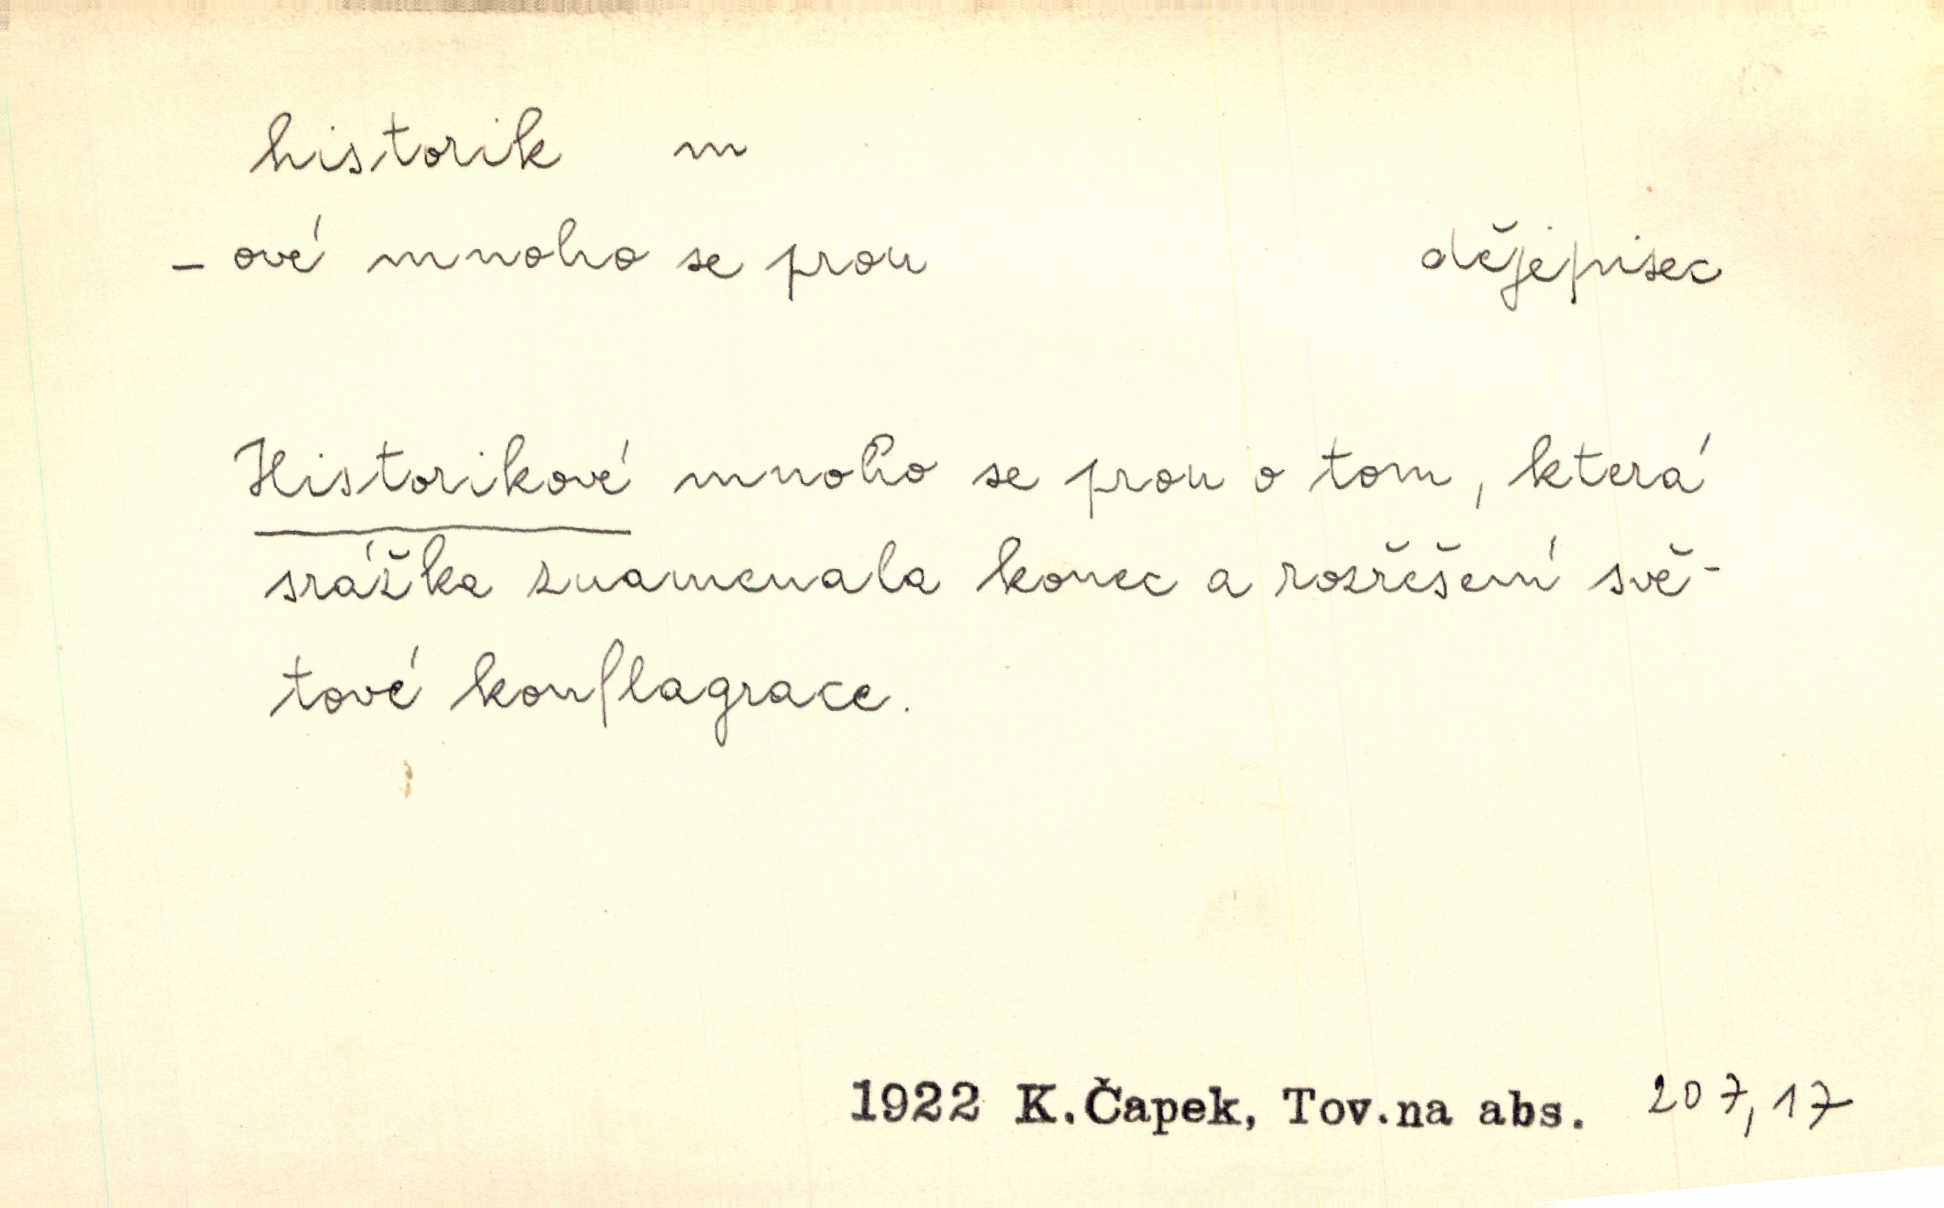 historik m
- ové mnoho se prou dějepisec
Historikové mnoho se prou o tom, která
srážka znamenala konec a rozřešení svě-
tové konflagrace.
1922 K. Čapek, Tov.na abs. 207,17